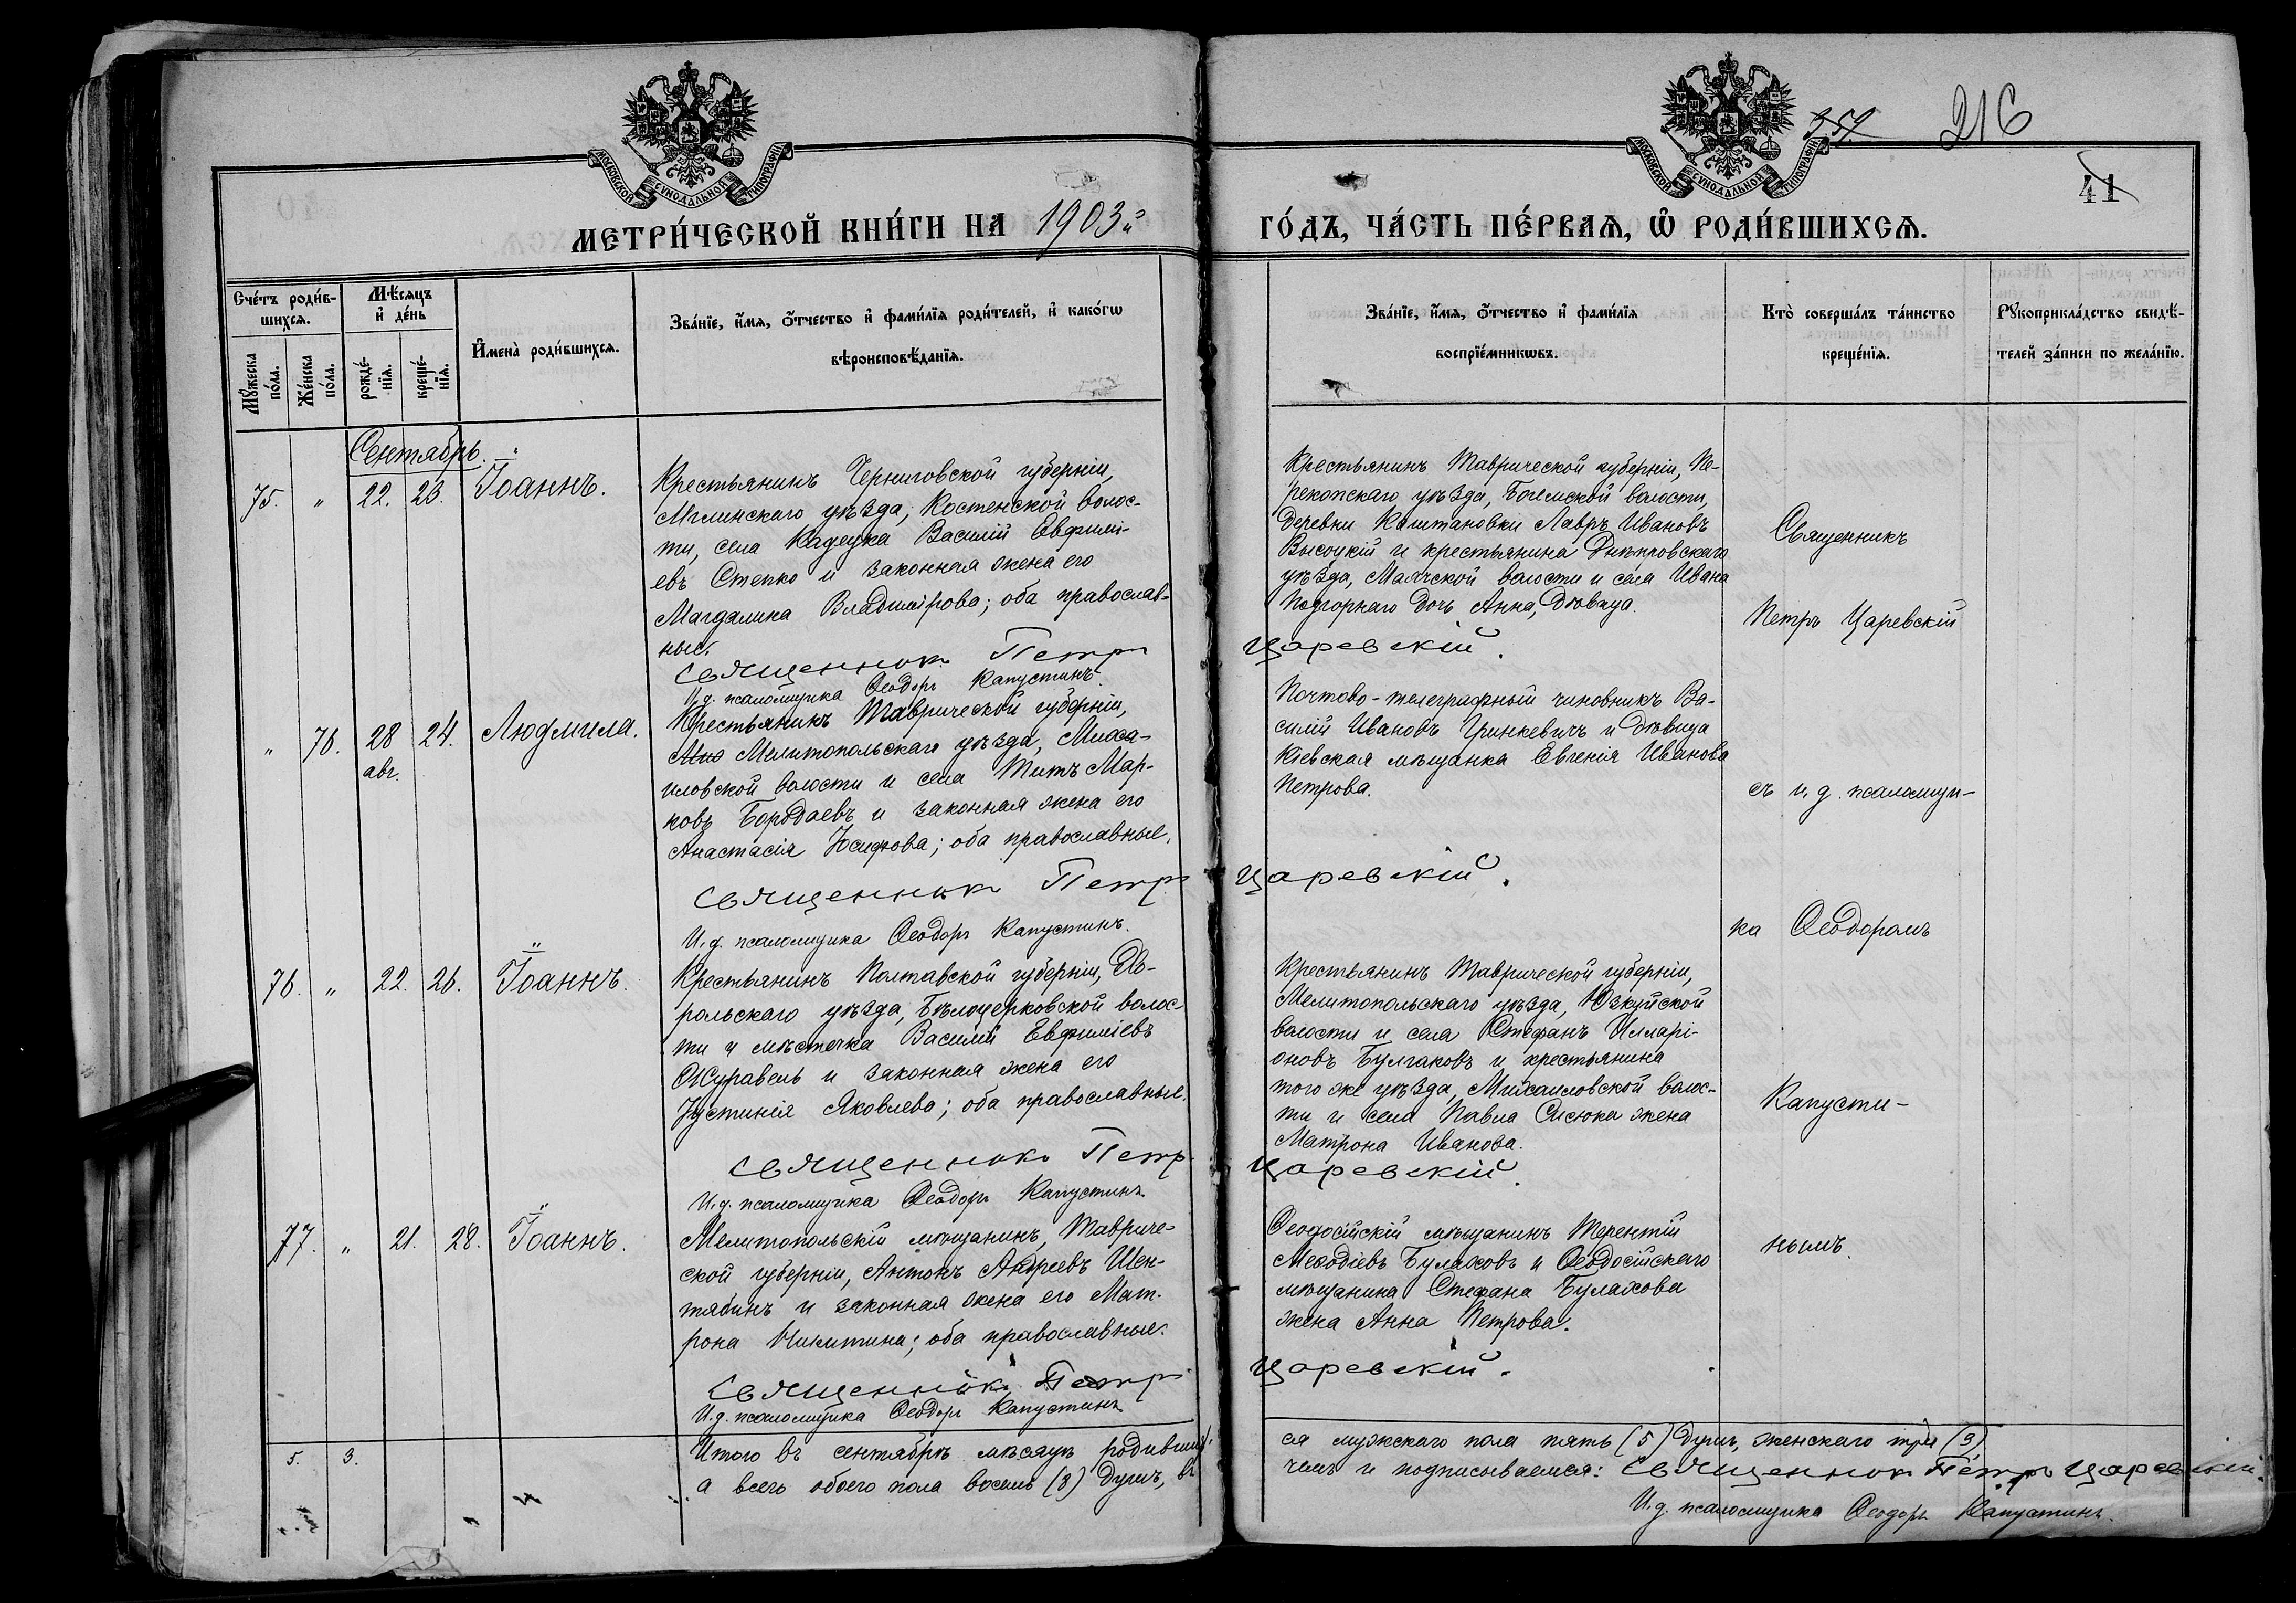 МОСКОВСКОЙ СУНОДАЛЬНОЙ ТИПОГРАФІИ
МОСКОВСКОЙ СУНОДАЛЬНОЙ ТИПОГРАФІИ
216
41
МЕТРИ́ЧЕСКОЙ КНИ́ГИ НА 1903й
ГО́ДЪ, ЧА́СТЬ ПЕ́РВАѦ, Ѽ РОДИ́ВШИХСѦ.
Сче́тъ роди́в-
шихсѧ.
Мꙋ́жеска по́ла.
Же́нска по́ла.
Мѣ́сѧцъ
и҆ де́нь
рожде́-
нїѧ.
креще́-
нїѧ.
И҆мена̀ роди́вшихсѧ.
Зва́нїе, и҆́мѧ, ѻ҆́тчество и҆ фами́лїѧ роди́телей, и҆ како́гѡ
вѣроисповѣ́данїѧ.
Зва́нїе, и҆́мѧ, ѻ҆́тчество и҆ фами́лїѧ
воспрїе́мникѡвъ.
Кто̀ соверша́лъ та́инство
креще́нїѧ.
Рꙋкоприкла́дство свидѣ́-
телей за́писи по жела́нїю.
Сентябрь.
75. " 22. 23. Іоаннъ.
Крестьянинъ Черниговской губерніи,
Мглинскаго уѣзда, Костенской волос-
ти, села Василій Евфимі-
евъ Степко и законная жена его
Магдалина Владимірова; оба православ-
ные.
Священникъ Петръ
И.д. псаломщика Ѳеодоръ Капустинъ.
Крестьянинъ Таврической губерніи, Пе-
рекопскаго уѣзда, Богемской волости,
деревни Каштановки Лавръ Ивановъ
Высоцкій и крестьянина Днѣпровскаго
уѣзда, Маячской волости и села Ивана
Подгорнаго дочь Анна, дѣвица.
Царевскій.
Священникъ
Петръ Царевскій
" 76. 28 авг. 24. Людмила.
Крестьянинъ Таврической губерніи,
Мелитопольскаго уѣзда, Миха-
иловской волости и села Титъ Мар-
ковъ Бородаевъ и законная жена его
Анастасія Іосифова; оба православные.
Священникъ Петръ
И.д. псаломщика Ѳеодоръ Капустинъ.
Почтово-телеграфный чиновникъ Ва-
силій Ивановъ Гринкевичъ и дѣвица
Кіевская мѣщанка Евгенія Иванова
Петрова.
Царевскій.
съ и.д. псаломщи-
ка Ѳеодоромъ
76. " 22. 26. Іоаннъ.
Крестьянинъ Полтавской губерніи,
рольскаго уѣзда, Бѣлоцерковской волос-
ти и мѣстечка Василій Евфиміевъ
Журавель и законная жена его
Іустинія Яковлева; оба православные.
Священникъ Петръ
И.д. псаломщика Ѳеодоръ Капустинъ
Крестьянинъ Таврической губерніи,
Мелитопольскаго уѣзда, Юзкуйской
волости и села Стефанъ Илларі-
оновъ Булгаковъ и крестьянина
того же уѣзда, Михаиловской волос-
ти и села Павла жена
Матрона Иванова.
Царевскій.
Капусти-
77. " 21. 28. Іоаннъ.
Мелитопольскій мѣщанинъ, Тавриче-
ской губерніи, Антонъ Андреевъ Шен-
тябинъ и законная жена его Мат-
рона Никитина; оба православные.
Священникъ Петръ
И.д. псаломщика Ѳеодоръ Капустинъ
Ѳеодосійскій мѣщанинъ Терентій
Меѳодіевъ Булаховъ и Ѳеодосійскаго
мѣщанина Стефана Булахова
жена Анна Петрова.
Царевскій.
нымъ.
5. 3.
Итого въ сентябрѣ мѣсяцѣ родивших-
ся мужскаго пола пять (5) душъ, женскаго три (3)
а всего обоего пола восемь (8) душъ, въ
чемъ и подписываемся: Священникъ Петръ Царевскій.
И.д. псаломщика Ѳеодоръ Капустинъ.